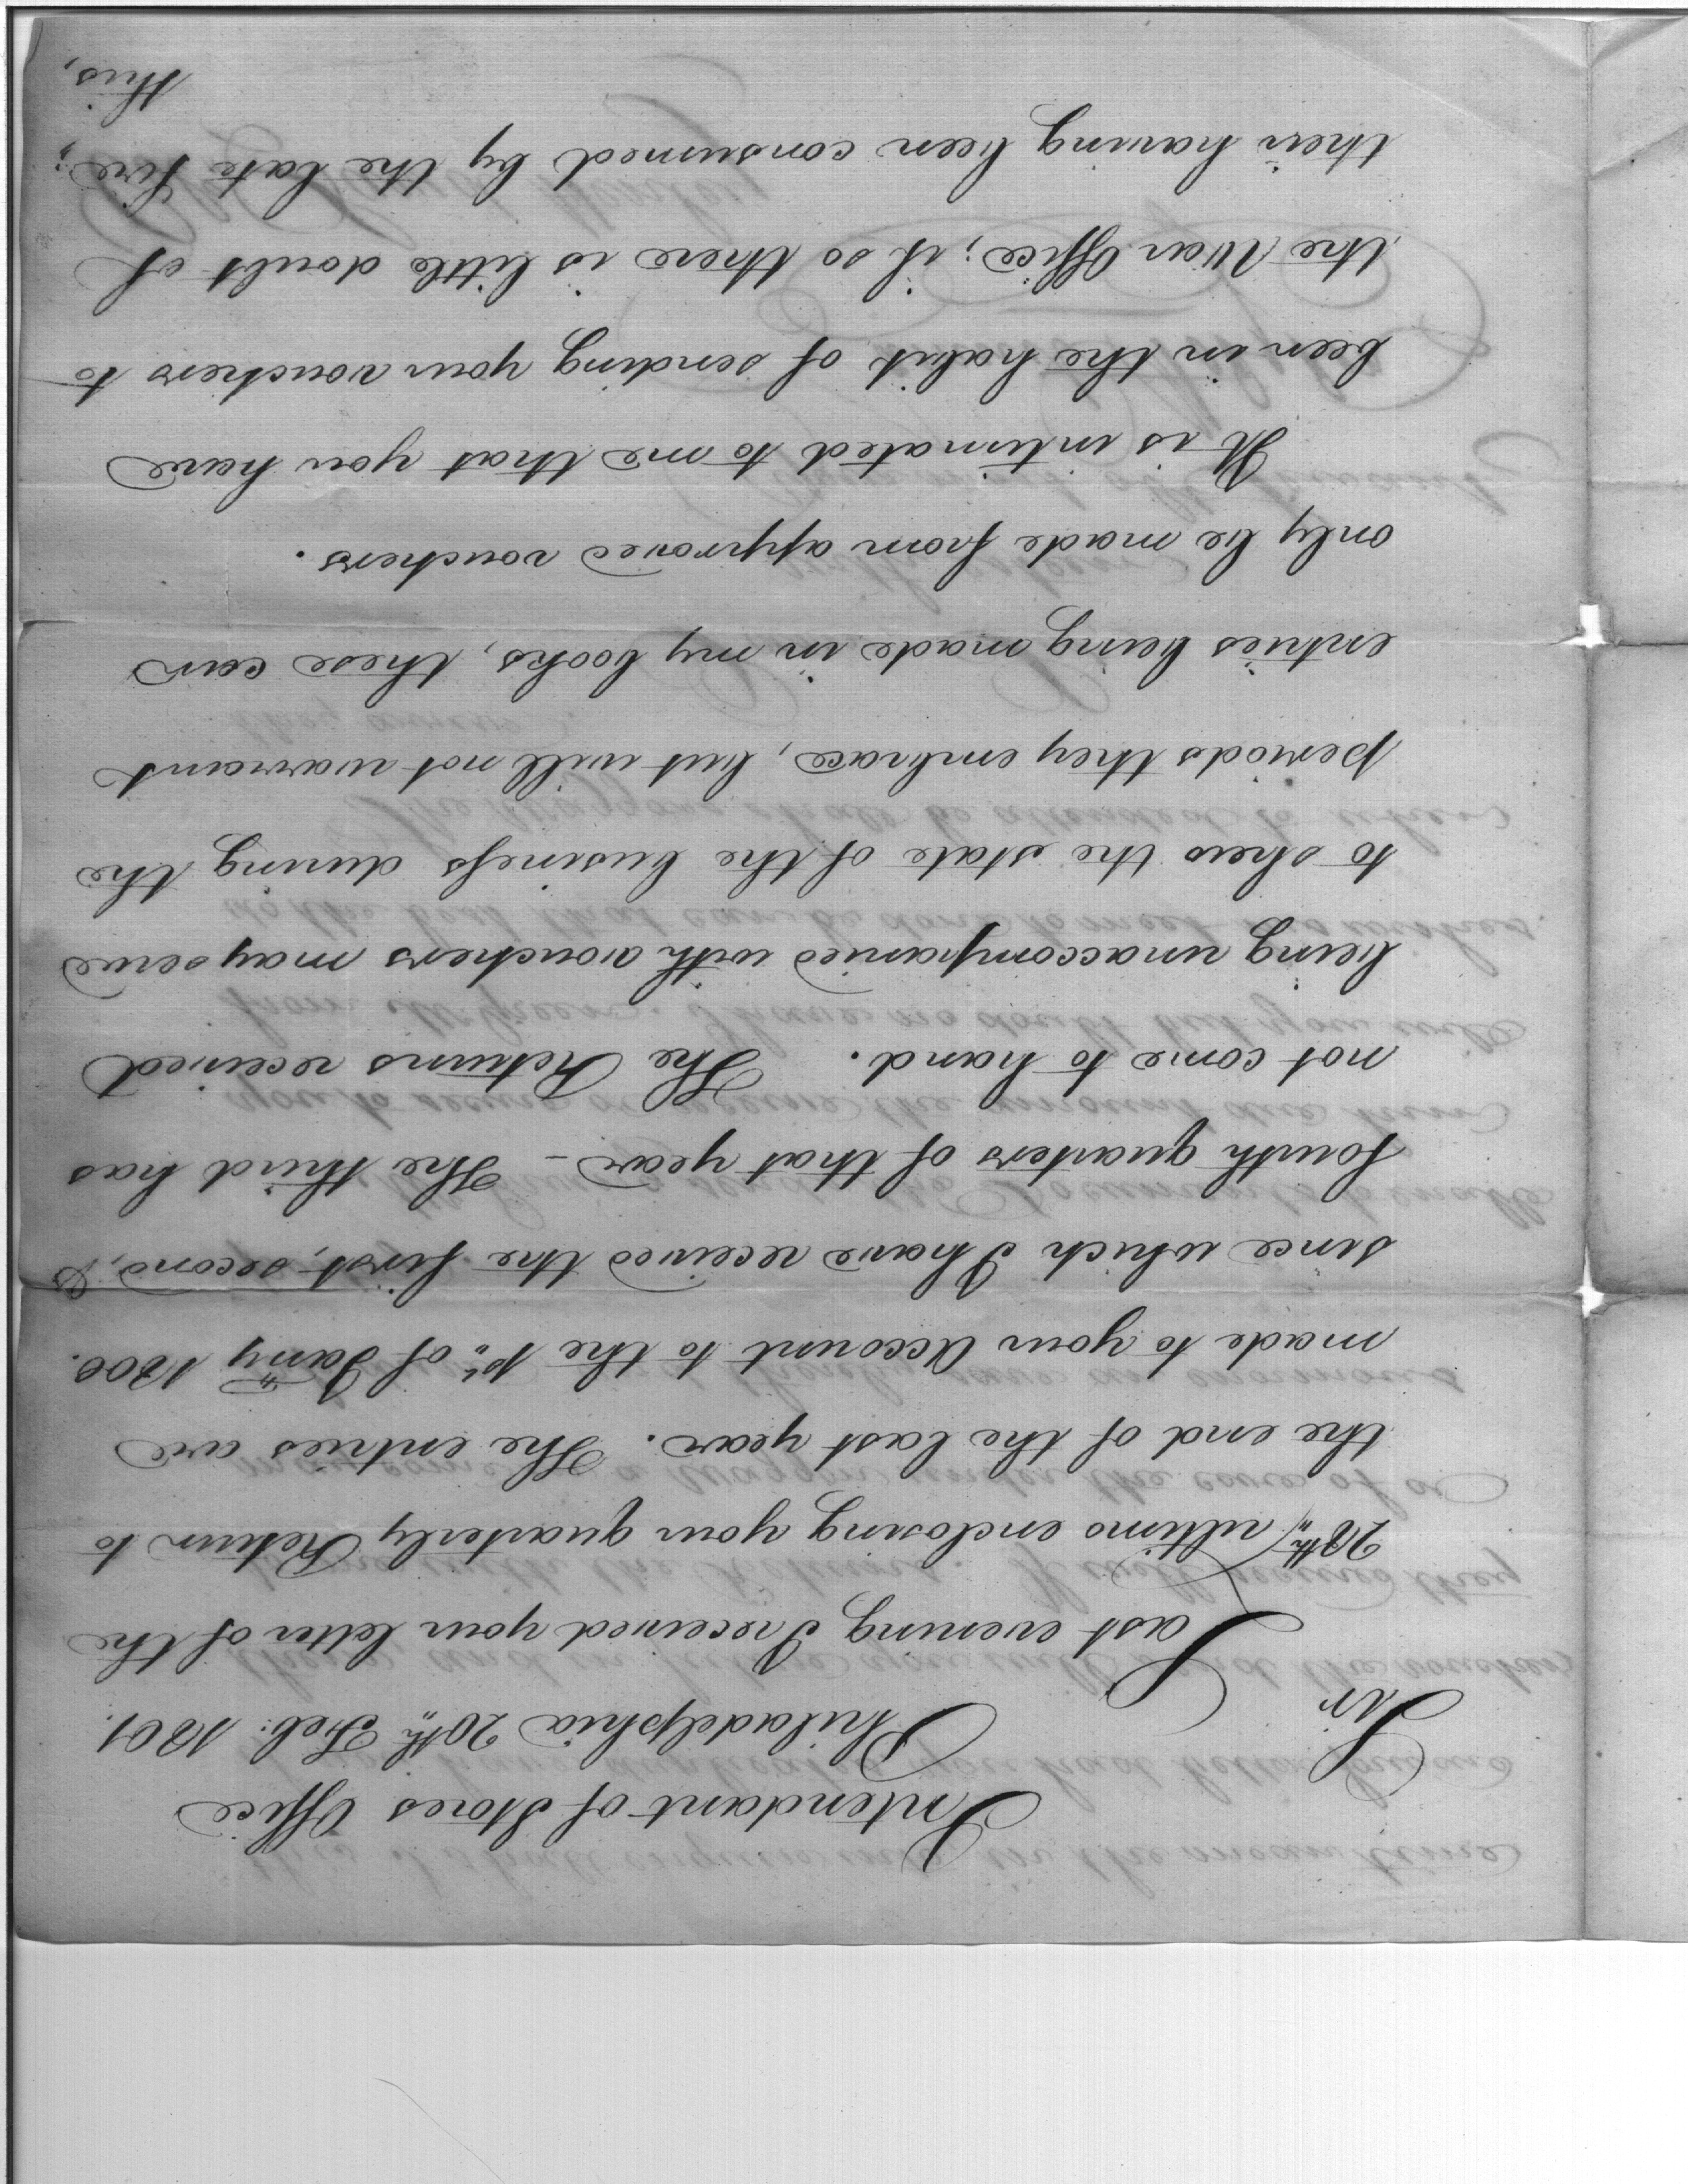 Intendant of Stores Office
Philadelphia 20th Feb: 1801.
Sir
Last evening I received your letter of the
28th ultimo enclosing your quarterly Return to
the end of the last year. The entries are
made to your Account to the 1st of Jany 1800.
since which I have received the first, second, &
fourth quarters of that year - The third has
not come to hand. The Returns received
being unaccompanied with vouchers may serve
to shew the state of the business during the
periods they embrace, but will not warrant
entries being made in my books, these can
only be made from approved vouchers.
It is intimated to me that you have
been in the habit of sending your vouchers to
the War Office; if so there is little doubt of
their having been consumed by the late fire;
this,